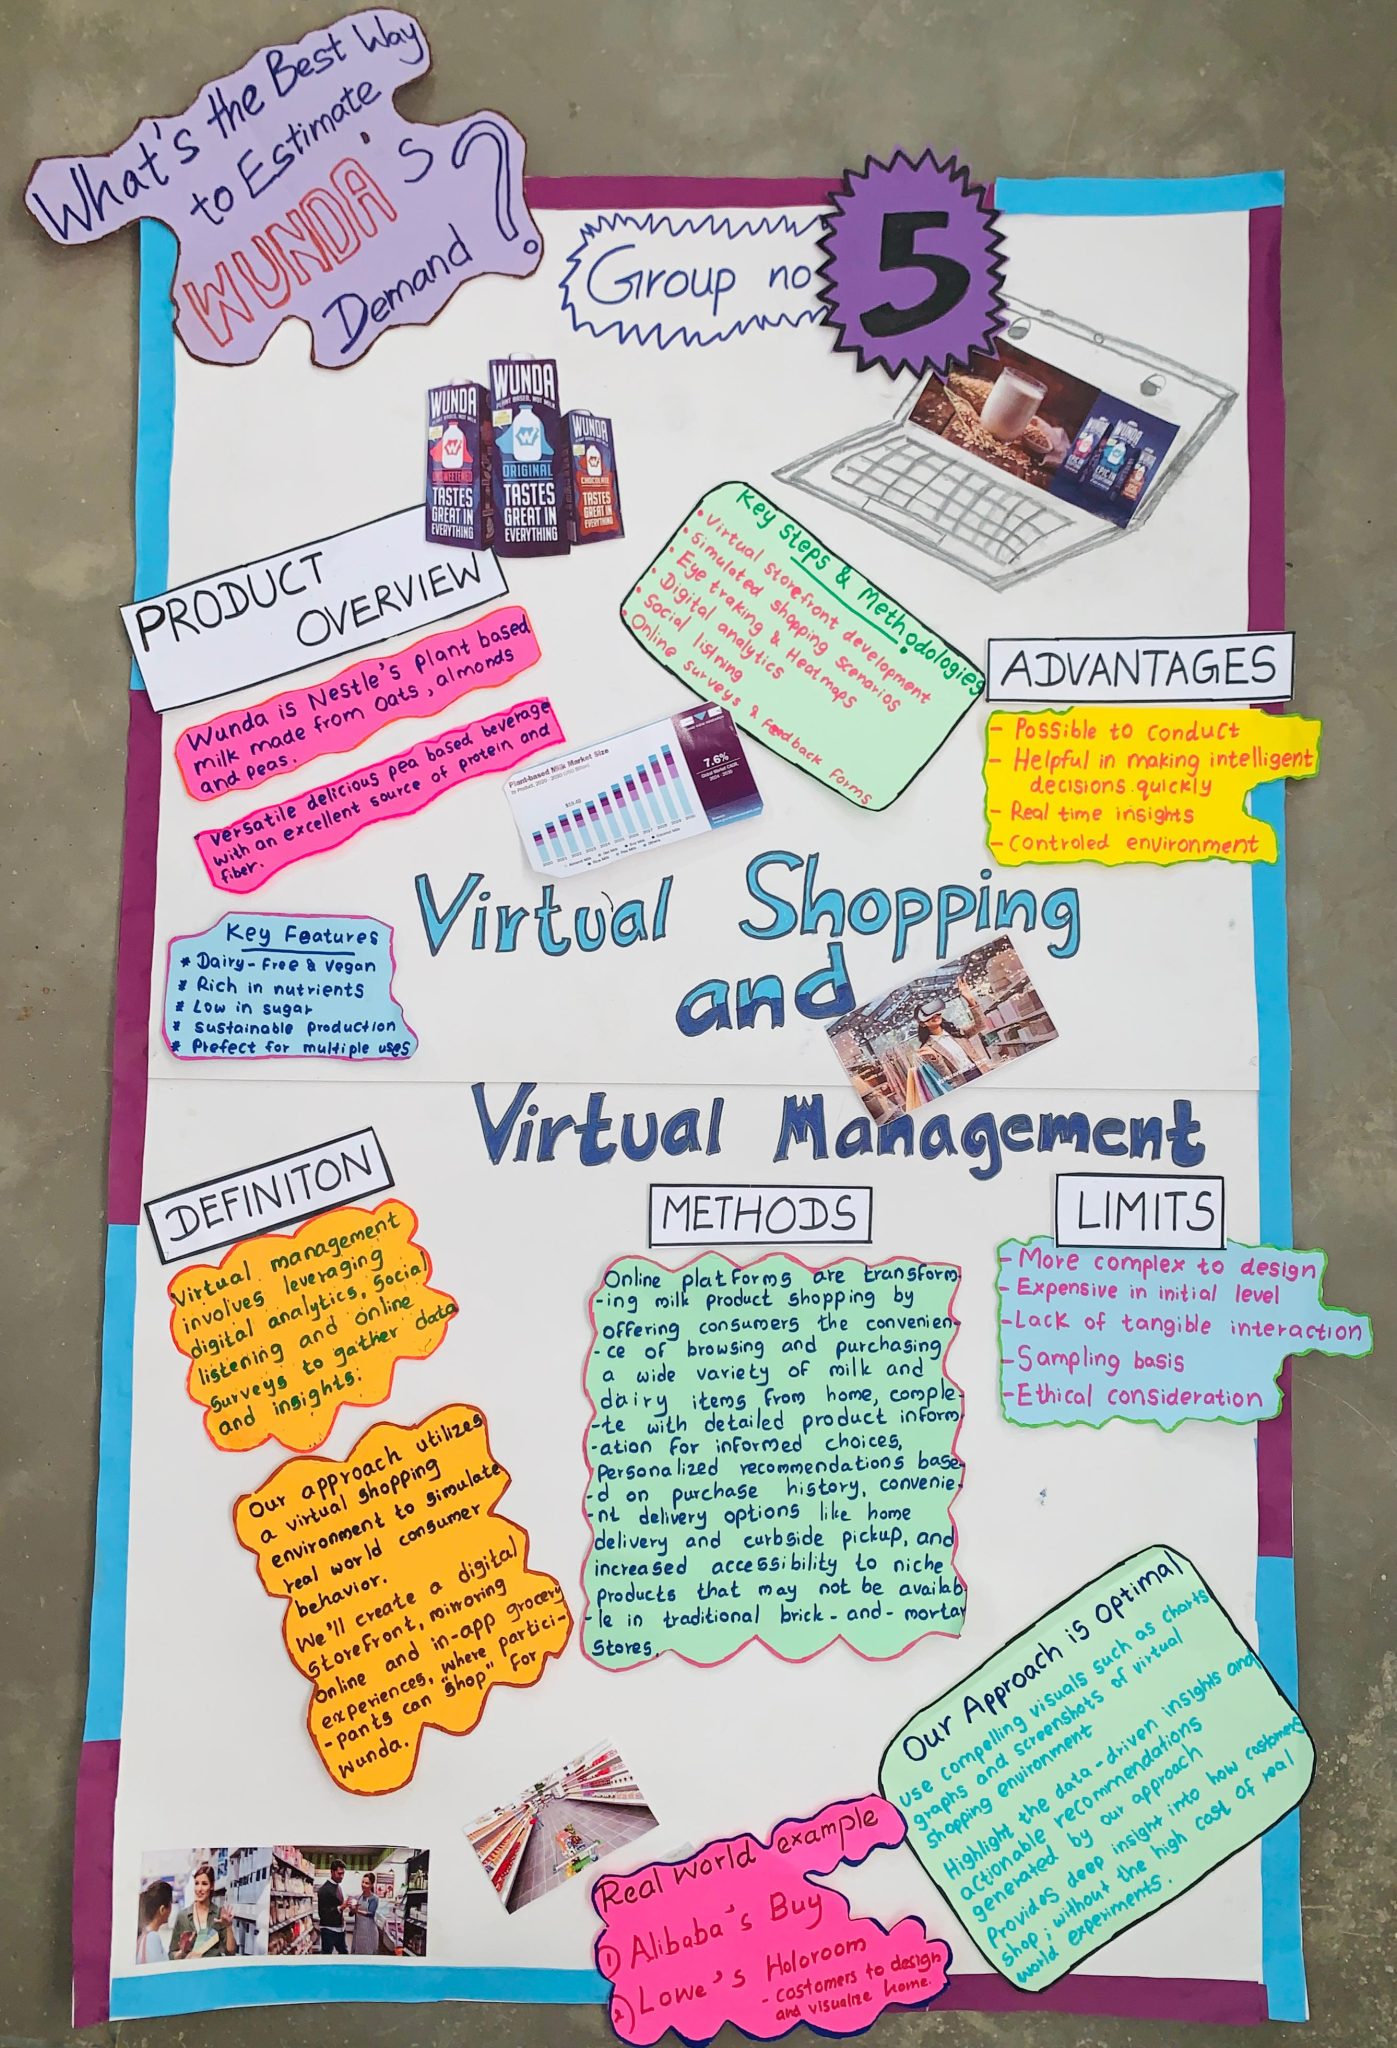 What's the Best Way
to Estimate
WUNDA's
Demand ?
Group no 5
WUNDA
PLANT BASED, NOT MILK
ORIGINAL
TASTES
GREAT IN
EVERYTHING
WUNDA
UNSWEETENED
TASTES
GREAT IN
EVERYTHING
WUNDA
CHOCOLATE
TASTES
GREAT IN
EVERYTHING
WUNDA
EPIC IN
PRODUCT
OVERVIEW
Wunda is Nestle's plant based
milk made from oats, almonds
and peas.
Versatile delicious pea based beverage
with an excellent source of protein and
fiber.
Key Features
* Dairy-Free & Vegan
* Rich in nutrients
* Low in sugar
* Sustainable production
* Prefect for multiple uses
Plant-based Milk Market Size
7.6%
Key Steps & Methodologies
• Virtual storefront development
• Simulated shopping scenarios
• Eye traking & Heatmaps
• Digital analytics
• Social listning
Online surveys & feedback forms
ADVANTAGES
- Possible to conduct
- Helpful in making intelligent
decisions quickly
- Real time insights
- Controled environment
Virtual Shopping
and
Virtual Management
DEFINITON
Virtual management
involves leveraging
digital analytics, social
listening and online
surveys to gather data
and insights.
Our approach utilizes
a virtual shopping
environment to simulate
real world consumer
behavior.
We'll create a digital
storefront, mirroring
online and in-app grocery
experiences, where partici-
-pants can "shop" for
Wunda.
METHODS
Online platforms are transform-
-ing milk product shopping by
offering consumers the convenien-
-ce of browsing and purchasing
a wide variety of milk and
dairy items from home, comple-
-te with detailed product inform-
-ation for informed choices,
Personalized recommendations base-
-d on purchase history, convenie-
-nt delivery options like home
delivery and curbside pickup, and
increased accessibility to niche
products that may not be availab-
-le in traditional brick-and-mortar
stores.
LIMITS
- More complex to design
- Expensive in initial level
- Lack of tangible interaction
- Sampling basis
- Ethical consideration
Our Approach is Optimal
use compelling visuals such as charts
graphs and screenshots of virtual
shopping environment
Highlight the data-driven insights and
actionable recommendations
generated by our approach
Provides deep insight into how customers
shop; without the high cost of real
world experiments.
Real world example
1) Alibaba's Buy
2) Lowe's Holoroom
- costomers to design
and visualize home.